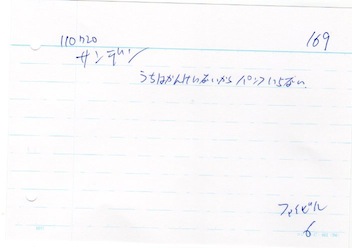 110720
169
サンデン
うちはかんけいないから パンフいらない
ファイビル
6